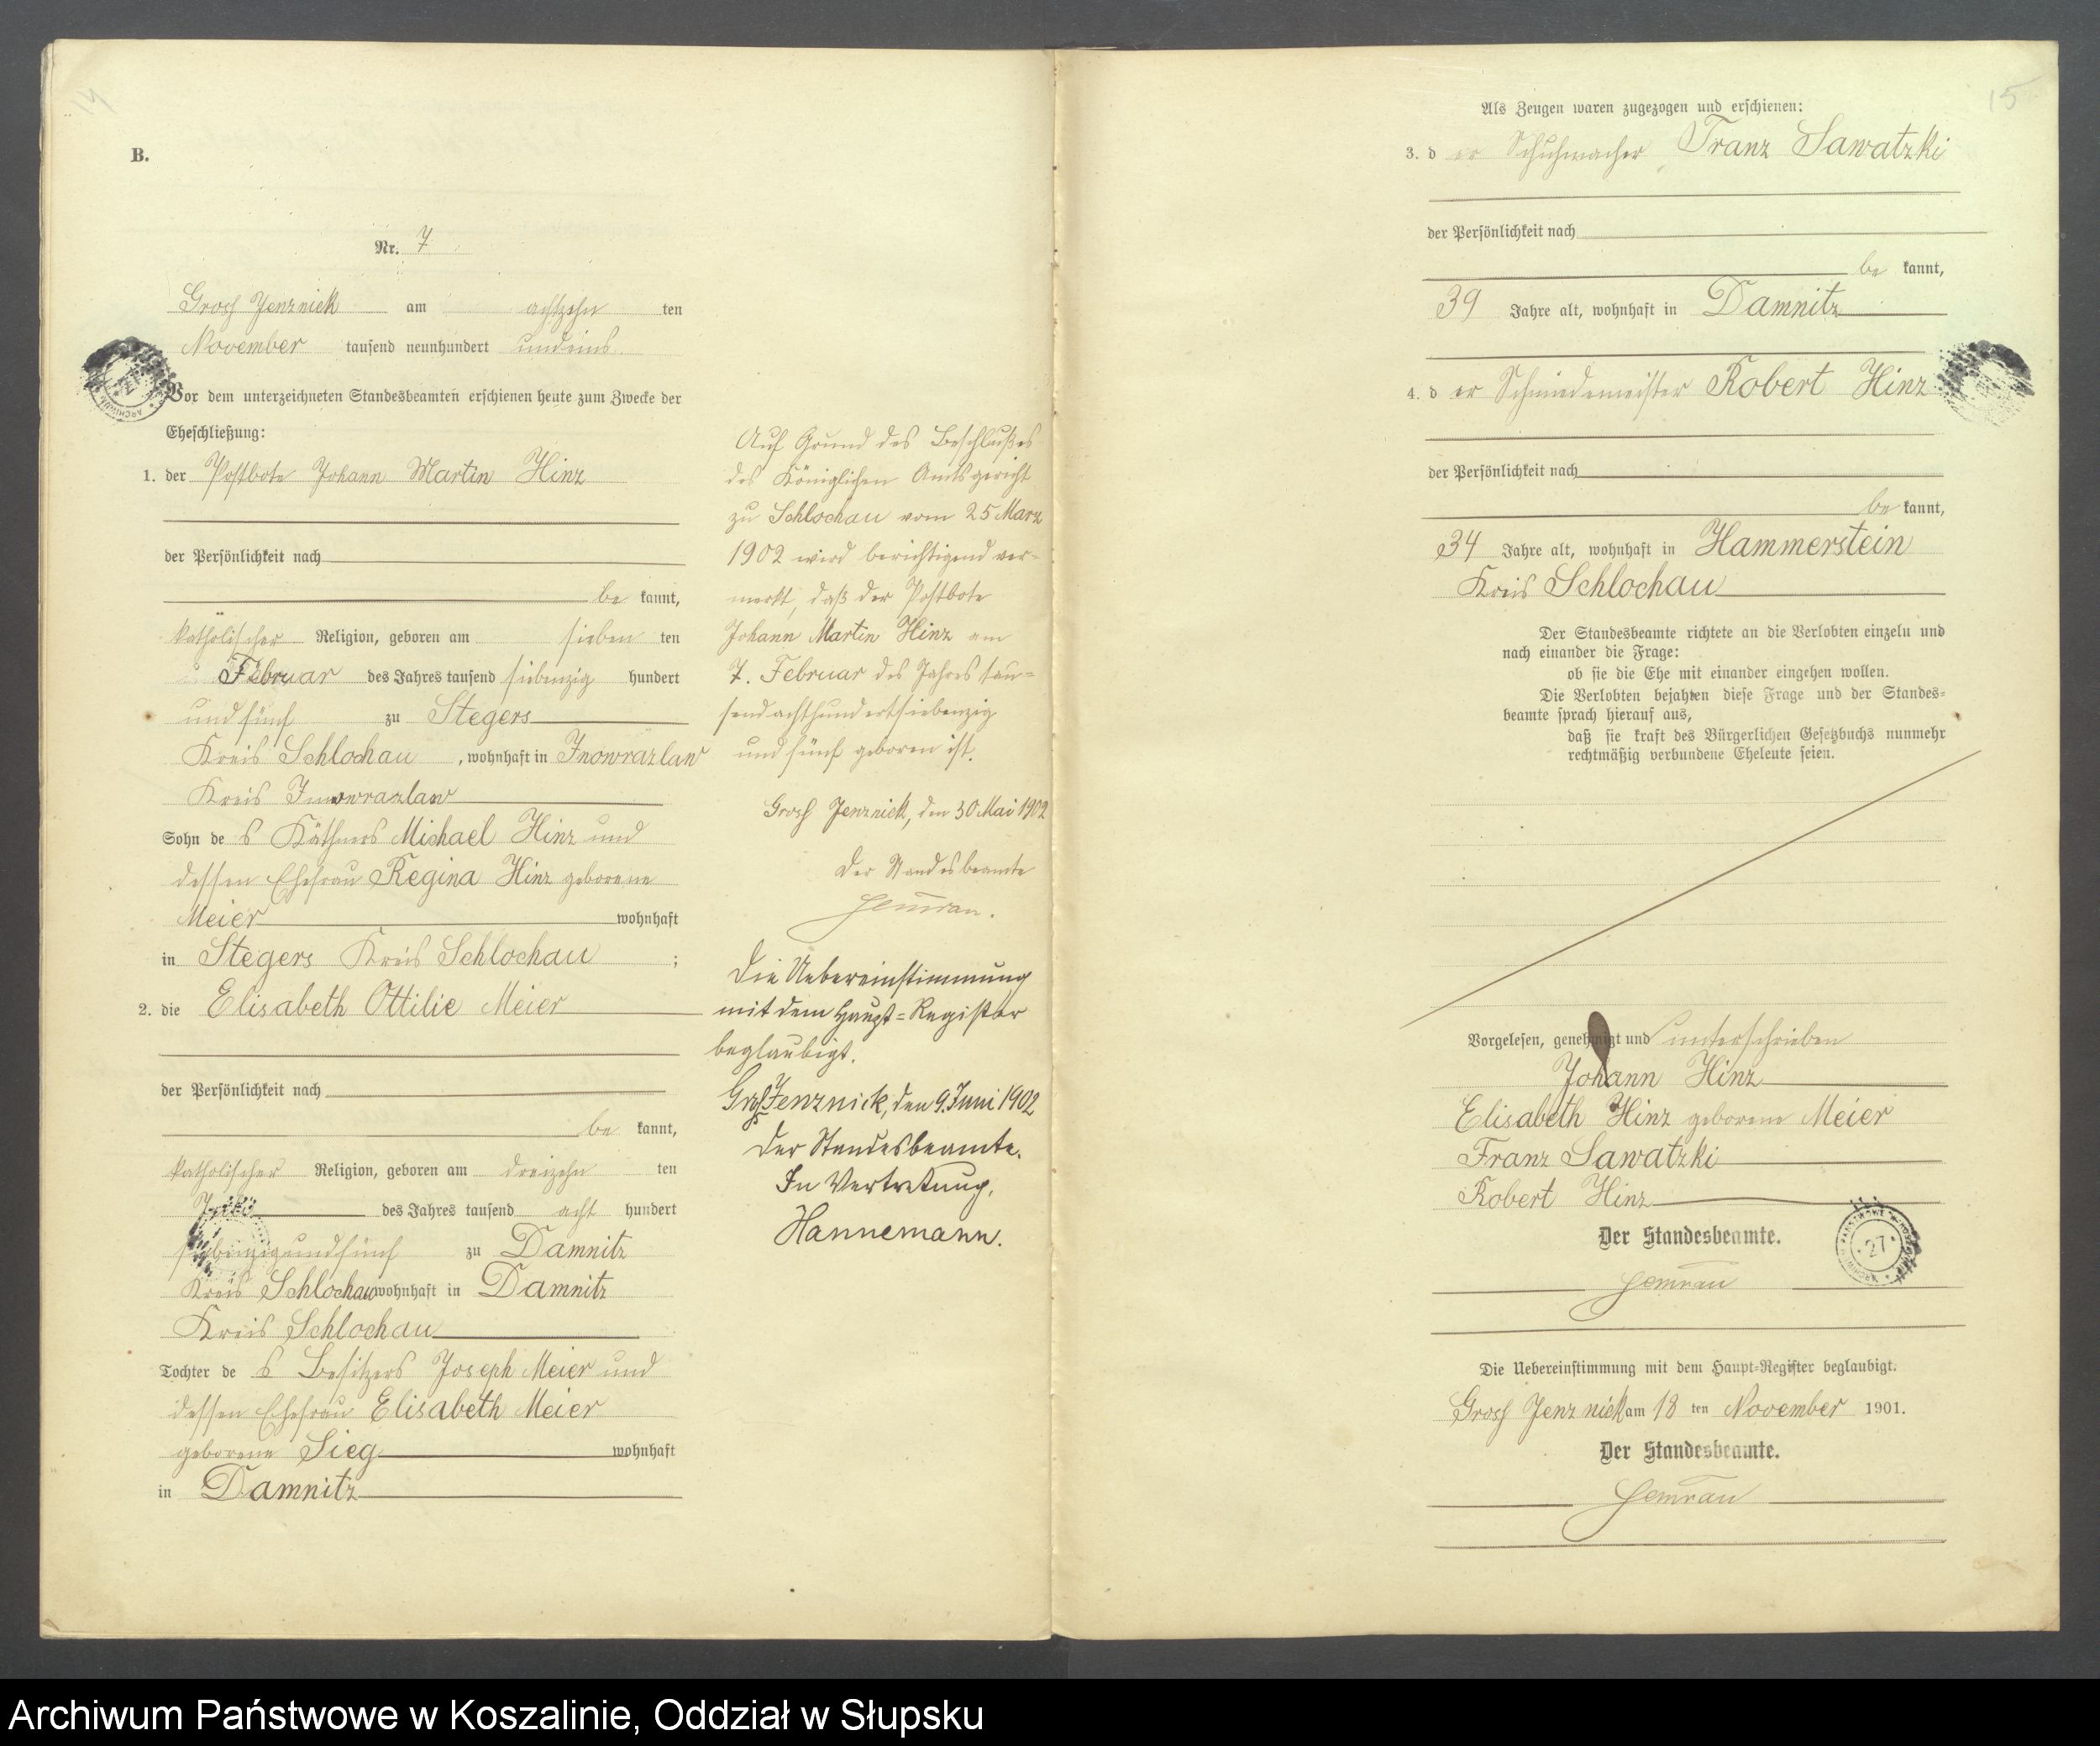 B.
Nr. 7
Gross Jenznick am achtzehn ten
November tausend neunhundert undeins
Vor dem unterzeichneten Standesbeamten erschienen heute zum Zwecke der
Eheschließung:
1. der Postbote Johann Martin Hinz
der Persönlichkeit nach
be kannt,
katholischer Religion, geboren am sieben ten
Februar des Jahres tausend siebenzig hundert
und fünf zu Stegers
Kreis Schlochau, wohnhaft in Inowrazlaw
Kreis Inowrazlaw
Sohn de s Käthners Michael Hinz und
dessen Ehefrau Regina Hinz geborene
Meier wohnhaft
in Stegers Kreis Schlochau ;
2. die Elisabeth Ottilie Meier
der Persönlichkeit nach
be kannt,
katholischer Religion, geboren am dreizehn ten
des Jahres tausend acht hundert
siebenzigundfünf zu Damnitz
Kreis Schlochau wohnhaft in Damnitz
Kreis Schlochau
Tochter de s Besitzers Joseph Meier und
dessen Ehefrau Elisabeth Meier
geborene Sieg wohnhaft
in Damnitz
Auf Grund des Beschlußes
des Königlichen Amtsgericht
zu Schlochau vom 25 März
1902 wird berichtigend ver-
merkt, daß der Postbote
Johann Martin Hinz am
7. Februar des Jahres tau-
sendachthundertsiebenzig
und fünf geboren ist.
Gross Jenznick, den 30 Mai 1902
Der Standesbeamte
Gemrau.
Die Uebereinstimmung
mit dem Haupt=Register
beglaubigt.
Groß Jenznick, den 9. Juni 1902
Der Standesbeamte.
In Vertretung.
Hannemann.
15
Als Zeugen waren zugezogen und erschienen:
3. d er Schuhmacher Franz Sawatzki
der Persönlichkeit nach
be kannt,
39 Jahre alt, wohnhaft in Damnitz
4. d er Schmiedemeister Robert Hinz
der Persönlichkeit nach
be kannt,
34 Jahre alt, wohnhaft in Hammerstein
Kreis Schlochau
Der Standesbeamte richtete an die Verlobten einzeln und
nach einander die Frage:
ob sie die Ehe mit einander eingehen wollen.
Die Verlobten bejahten diese Frage und der Standes-
beamte sprach hierauf aus,
daß sie kraft des Bürgerlichen Gesetzbuchs nunmehr
rechtmäßig verbundene Eheleute seien.
Vorgelesen, genehmigt und unterschrieben
Johann Hinz
Elisabeth Hinz geborene Meier
Franz Sawatzki
Robert Hinz
Der Standesbeamte.
27
Gemrau
Die Uebereinstimmung mit dem Haupt-Register beglaubigt.
Gross Jenznick am 18 ten November 1901.
Der Standesbeamte.
Gemrau
Archiwum Państwowe w Koszalinie, Oddział w Słupsku